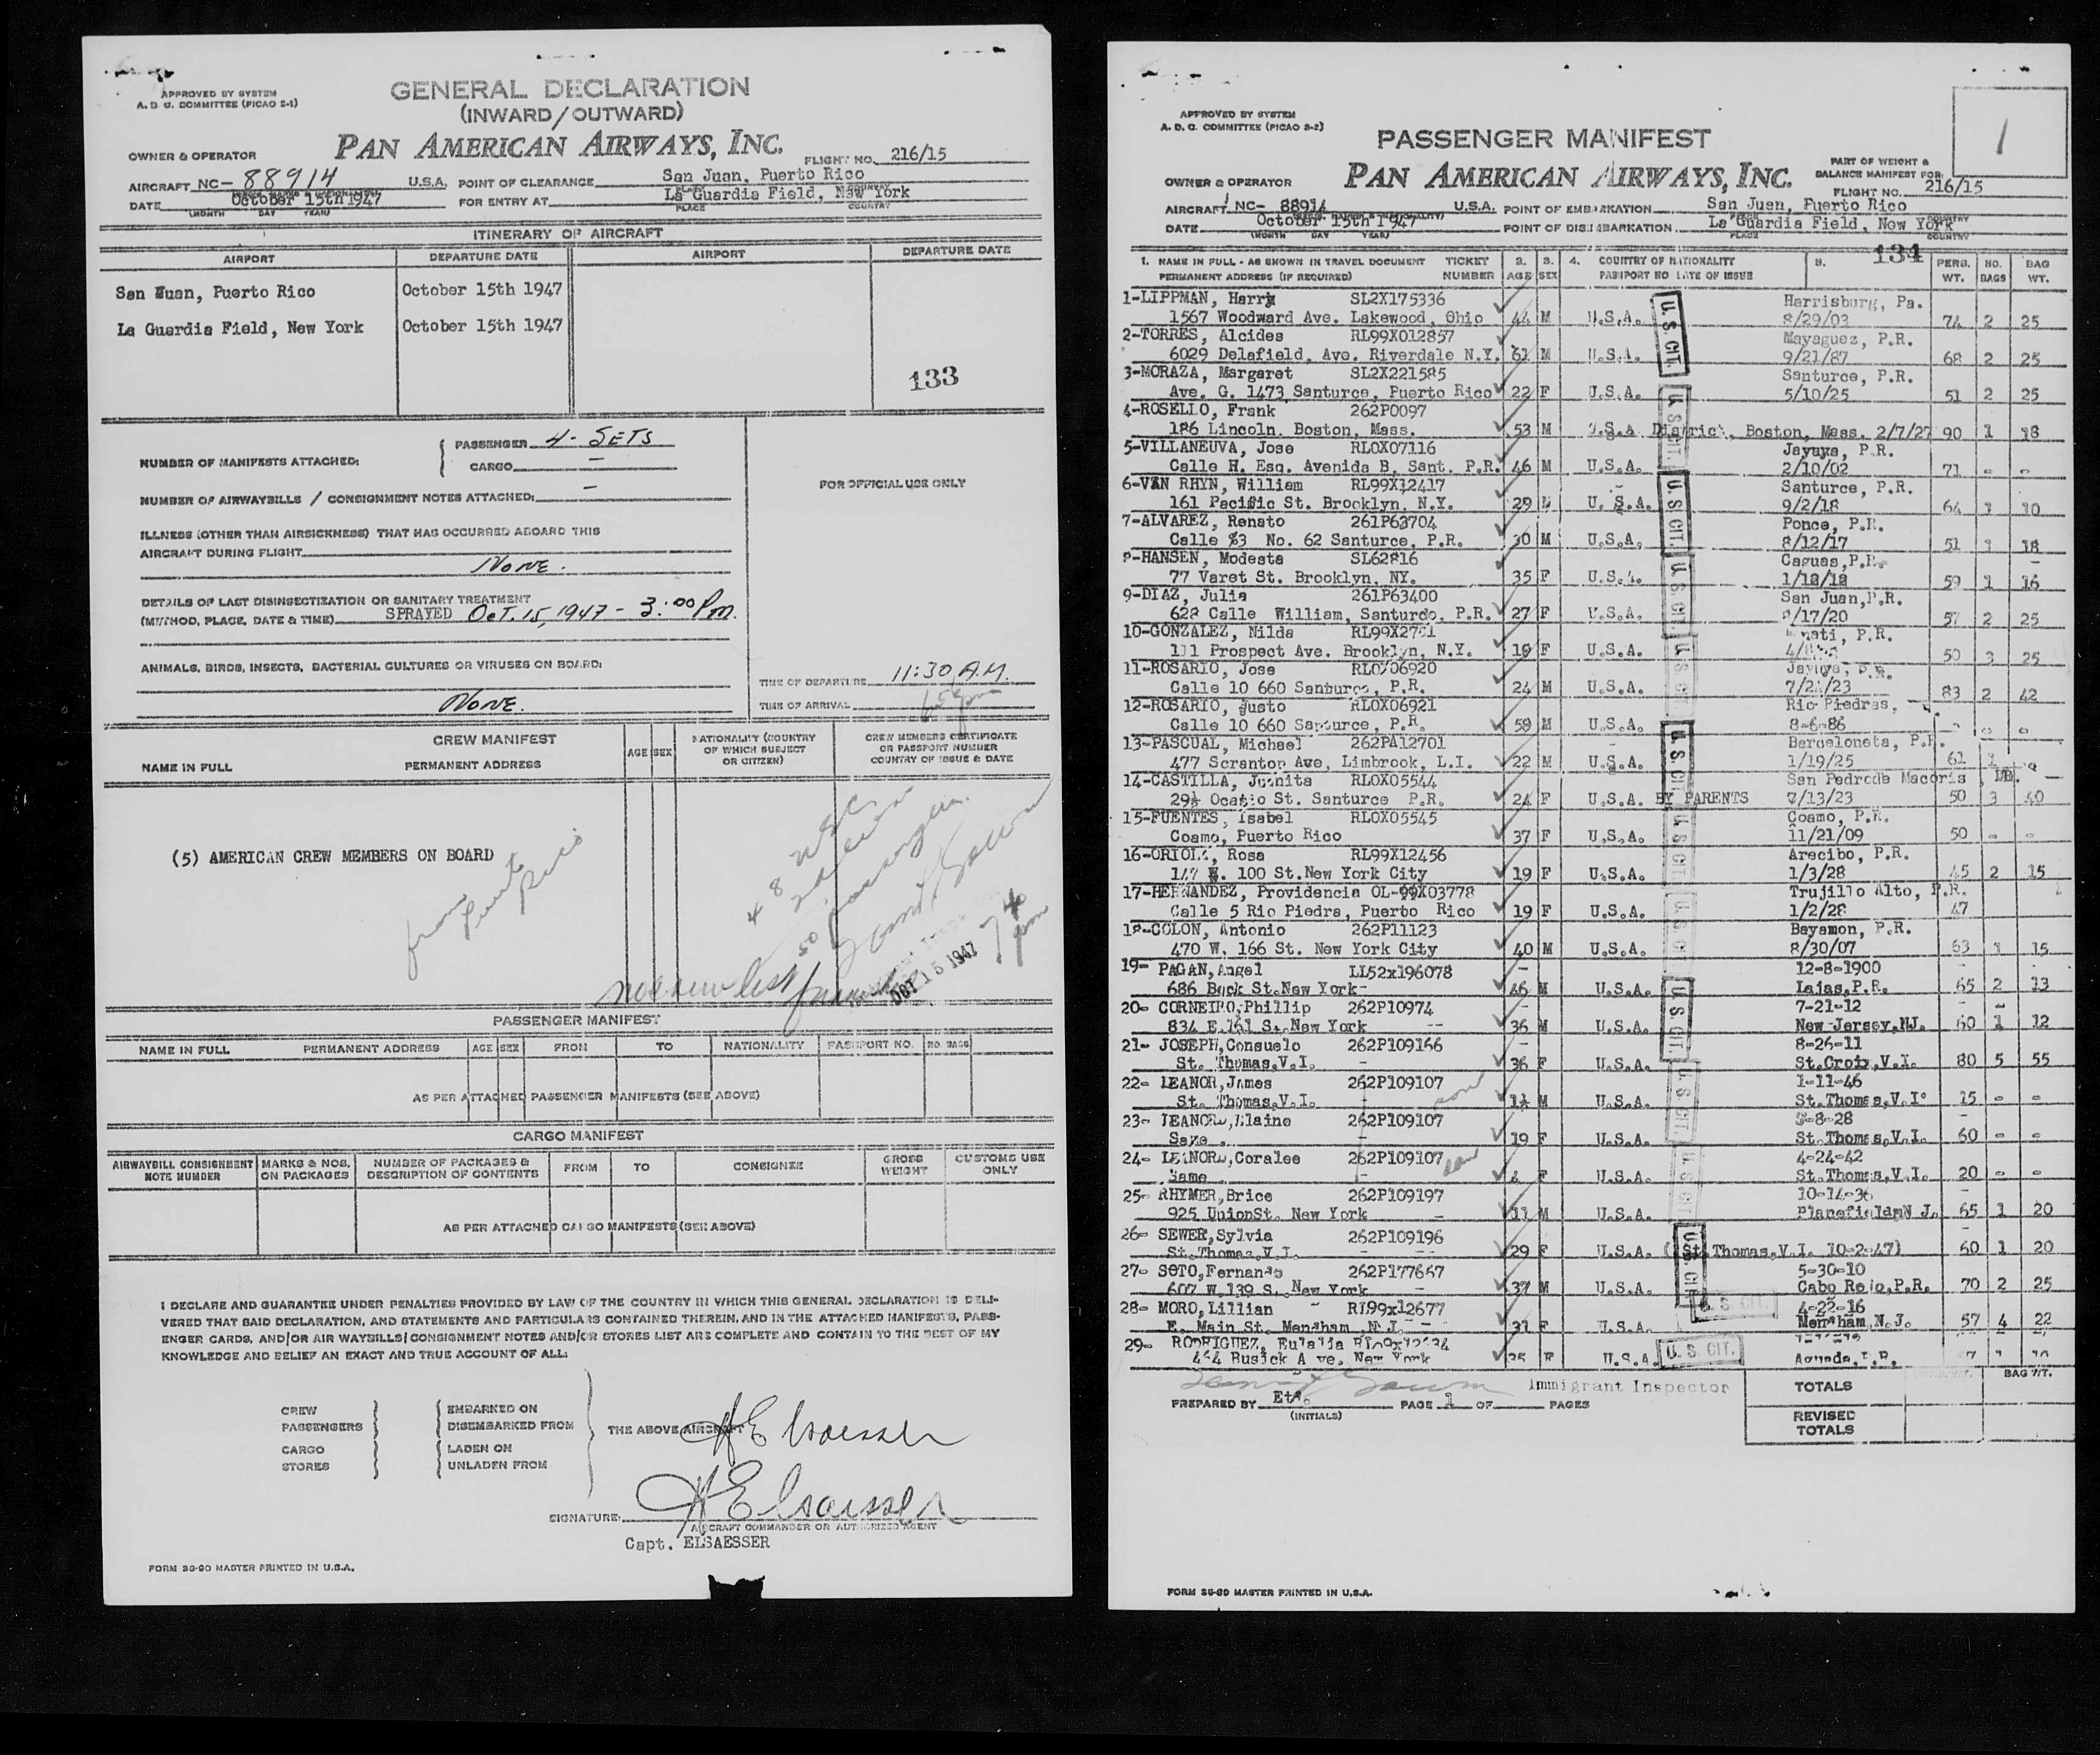 APPROVED BY SYSTEM
A. D. C. COMMITTEE (PICAO 2-1)
GENERAL DECLARATION
(INWARD/OUTWARD)
OWNER & OPERATOR PAN AMERICAN AIRWAYS, INC. FLIGHT NO. 216/15
AIRCRAFT NC- 88914 U.S.A. POINT OF CLEARANCE San Juan, Puerto Rico
DATE October 15th 1947 FOR ENTRY AT La Guardia Field, New York
(MONTH DAY YEAR) PLACE COUNTRY
ITINERARY OF AIRCRAFT
AIRPORT DEPARTURE DATE AIRPORT DEPARTURE DATE
San Juan, Puerto Rico October 15th 1947
La Guardia Field, New York October 15th 1947
133
NUMBER OF MANIFESTS ATTACHED: PASSENGER 4- SETS
CARGO —
NUMBER OF AIRWAYBILLS / CONSIGNMENT NOTES ATTACHED: —
FOR OFFICIAL USE ONLY
ILLNESS (OTHER THAN AIRSICKNESS) THAT HAS OCCURRED ABOARD THIS
AIRCRAFT DURING FLIGHT
NONE.
DETAILS OF LAST DISINSECTIZATION OR SANITARY TREATMENT
(METHOD, PLACE, DATE & TIME) SPRAYED OCT. 15, 1947 - 3:00 Pm.
ANIMALS, BIRDS, INSECTS, BACTERIAL CULTURES OR VIRUSES ON BOARD:
NONE.
TIME OF DEPARTURE 11:30 A.M.
TIME OF ARRIVAL
CREW MANIFEST
NAME IN FULL PERMANENT ADDRESS
AGE SEX
NATIONALITY (COUNTRY
OF WHICH SUBJECT
OR CITIZEN)
CREW MEMBERS CERTIFICATE
OR PASSPORT NUMBER
COUNTRY OF ISSUE & DATE
(5) AMERICAN CREW MEMBERS ON BOARD
from
Puerto
Rico
OCT 15 1947
PASSENGER MANIFEST
NAME IN FULL PERMANENT ADDRESS AGE SEX FROM TO NATIONALITY PASSPORT NO. NO. BAGS
AS PER ATTACHED PASSENGER MANIFESTS (SEE ABOVE)
CARGO MANIFEST
AIRWAYBILL CONSIGNMENT
NOTE NUMBER
MARKS & NOS.
ON PACKAGES
NUMBER OF PACKAGES &
DESCRIPTION OF CONTENTS
FROM TO CONSIGNEE
GROSS
WEIGHT
CUSTOMS USE
ONLY
AS PER ATTACHED CARGO MANIFESTS (SEE ABOVE)
I DECLARE AND GUARANTEE UNDER PENALTIES PROVIDED BY LAW OF THE COUNTRY IN WHICH THIS GENERAL DECLARATION IS DELI-
VERED THAT SAID DECLARATION, AND STATEMENTS AND PARTICULARS CONTAINED THEREIN, AND IN THE ATTACHED MANIFESTS, PASS-
ENGER CARDS, AND/OR AIR WAYBILLS/CONSIGNMENT NOTES AND/OR STORES LIST ARE COMPLETE AND CONTAIN TO THE BEST OF MY
KNOWLEDGE AND BELIEF AN EXACT AND TRUE ACCOUNT OF ALL:
CREW
PASSENGERS
CARGO
STORES
EMBARKED ON
DISEMBARKED FROM
LADEN ON
UNLADEN FROM
THE ABOVE AIRCRAFT H E Elsaesser
SIGNATURE: H E Elsaesser
AIRCRAFT COMMANDER OR AUTHORIZED AGENT
Capt. ELSAESSER
FORM 36-90 MASTER PRINTED IN U.S.A.
APPROVED BY SYSTEM
A. D. C. COMMITTEE (PICAO 2-2)
1
PASSENGER MANIFEST
OWNER & OPERATOR PAN AMERICAN AIRWAYS, INC.
PART OF WEIGHT &
BALANCE MANIFEST FOR
FLIGHT NO. 216/15
AIRCRAFT NC- 88914 U.S.A. POINT OF EMBARKATION San Juan, Puerto Rico
DATE October 15th 1947 POINT OF DISEMBARKATION La Guardia Field, New York
(MONTH DAY YEAR) PLACE COUNTRY
134
1. NAME IN FULL - AS SHOWN IN TRAVEL DOCUMENT TICKET 2. 3. 4. COUNTRY OF NATIONALITY 5. PERS. NO. BAG
PERMANENT ADDRESS (IF REQUIRED) NUMBER AGE SEX PASSPORT NO DATE OF ISSUE WT. BAGS WT.
1-LIPPMAN, Harry SL2X175336 Harrisburg, Pa.
1567 Woodward Ave. Lakewood, Ohio 44 M U.S.A. 8/29/03 74 2 25
2-TORRES, Alcides RL99X012857 Mayaguez, P.R.
6029 Delafield, Ave. Riverdale N.Y. 61 M U.S.A. 9/21/87 68 2 25
3-MORAZA, Margaret SL2X221585 Santurce, P.R.
Ave. G. 1473 Santurce, Puerto Rico 22 F U.S.A. 5/10/25 51 2 25
4-ROSELLO, Frank 262P0097
186 Lincoln. Boston, Mass. 53 M U.S.A District, Boston, Mass. 2/7/27 90 1 18
5-VILLANEUVA, Jose RLOX07116 Jayuya, P.R.
Calle H. Esq. Avenida B, Sant. P.R. 46 M U.S.A. 2/10/02 71 - -
6-VAN RHYN, William RL99X12417 Santurce, P.R.
161 Pacific St. Brooklyn, N.Y. 29 U.S.A. 9/2/18 64 1 10
7-ALVAREZ, Renato 261P63704 Ponce, P.R.
Calle 23 No. 62 Santurce, P.R. 30 M U.S.A. 8/12/17 51 1 18
8-HANSEN, Modesta SL62816 Caguas, P.R.
77 Varet St. Brooklyn, NY. 35 F U.S.A. 1/18/18 59 1 16
9-DIAZ, Julia 261P63400 San Juan, P.R.
628 Calle William, Santurde, P.R. 27 F U.S.A. /17/20 57 2 25
10-GONZALEZ, Nilda P.R.
111 Prospect Ave. Brooklyn, N.Y. 19 F U.S.A. 50 3 25
11-ROSARIO, Jose RLOX06920 Jayuya, P.R.
Calle 10 660 Santurce, P.R. 24 M U.S.A. 83 2 42
12-ROSARIO, Justo RLOX06921 Rio Piedras,
Calle 10 660 Santurce, P.R. 59 M U.S.A. 8-6-86 - -
13-PASCUAL, Michael 262PA12701 Barceloneta, P.R.
477 Scranton Ave, Limbrook, L.I. 22 M U.S.A. 1/19/25 61
14-CASTILLA, Juanita RLOX05544 San Pedrode Macoris
29½ Ocasio St. Santurce P.R. 24 F U.S.A. BY PARENTS 7/13/23 50 3 40
15-FUENTES, Isabel RLOX05545 Coamo, P.R.
Coamo, Puerto Rico 37 F U.S.A. 11/21/09 50 - -
16-ORIOLA, Rosa RL99X12456 Arecibo, P.R.
147 E. 100 St. New York City 19 F U.S.A. 1/3/28 45 2 15
17-HERNANDEZ, Providencia OL-99X03778 Trujillo Alto, P.R.
Calle 5 Rio Piedra, Puerto Rico 19 F U.S.A. 1/2/28 47
18-COLON, Antonio 262P11123 Bayamon, P.R.
470 W. 166 St. New York City 40 M U.S.A. 8/30/07 63 1 15
19- PAGAN, Angel LL52x196078 12-8-1900
686 Buck St. New York- 46 M U.S.A. Lajas, P.R. 65 2 13
20- CORNEIRO, Phillip 262P10974 7-21-12
834 E. 161 St. New York -- 36 M U.S.A. New Jersey, NJ. 60 1 12
21- JOSEPH, Consuelo 262P109166 8-26-11
St. Thomas, V.I. 36 F U.S.A. St. Croix, V.I. 80 5 55
22- LEANOR, James 262P109107 1-11-46
St. Thomas, V.I. M U.S.A. St. Thomas, V.I. 15 - -
23- LEANOR, Elaine 262P109107 -8-28
Same 19 F U.S.A. St. Thomas, V.I. 60 - -
24- LEANOR, Coralee 262P109107 4-24-42
Same 4 F U.S.A. St. Thomas, V.I. 20 - -
25- RHYMER, Brice 262P109197 10-14-36
925 UnionSt. New York - 11 M U.S.A. N J. 65 1 20
26- SEWER, Sylvia 262P109196
St. Thomas, V.I. 29 F U.S.A. (St. Thomas, V.I. 10-2-47) 60 1 20
27- SOTO, Fernando 262P177667 5-30-10
607 W. 139 S. New York - 37 M U.S.A. Cabo Rojo, P.R. 70 2 25
28- MORO, Lillian RL99x12677 4-22-16
E. Main St. Mendham, N.J. 31 F U.S.A. Mendham, N.J. 57 4 22
29- RODRIGUEZ, Eulalia
Busick Ave. New York F U.S.A. Aguada, P.R.
U. S. CIT.
Immigrant Inspector
PREPARED BY (INITIALS) PAGE 1 OF PAGES
TOTALS
BAG WT.
REVISED
TOTALS
FORM 36-90 MASTER PRINTED IN U.S.A.